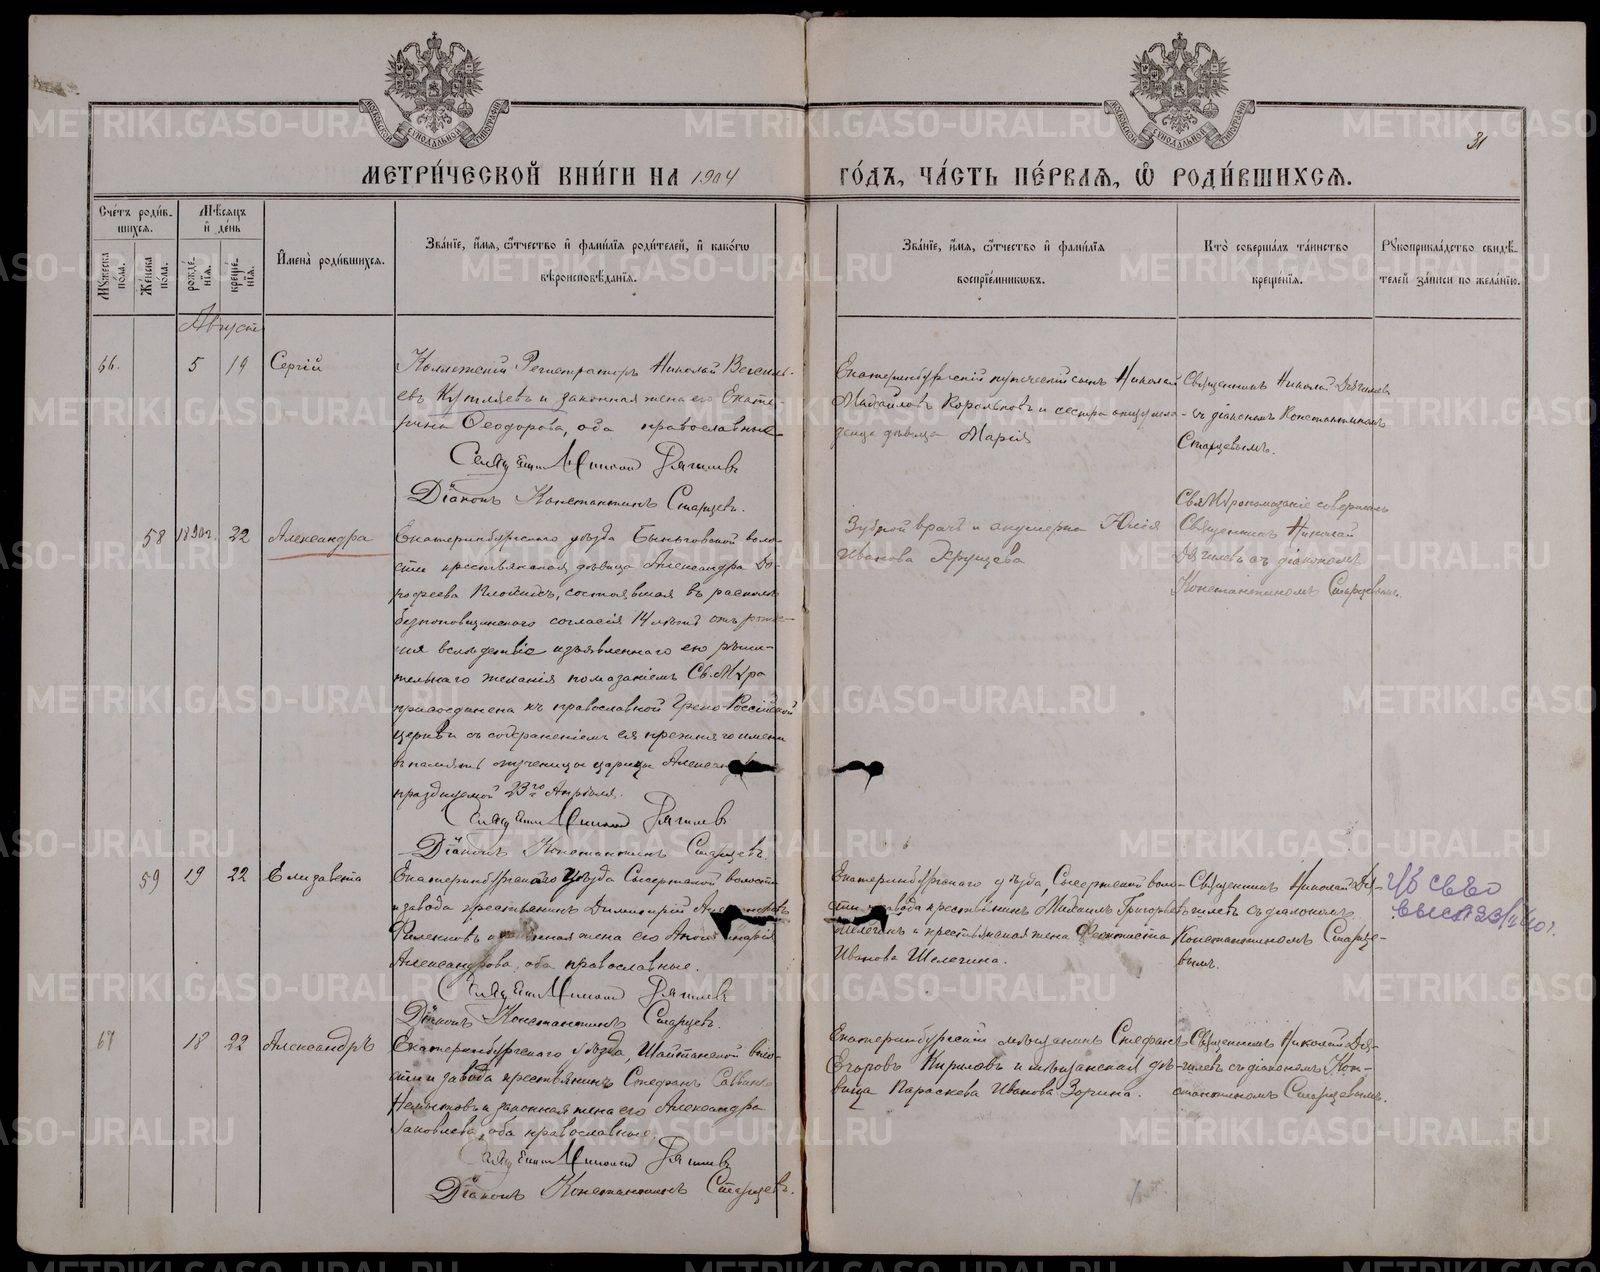 МОСКОВСКОЙ СѴНОДАЛЬНОЙ ТИПОГРАФІИ
МОСКОВСКОЙ СѴНОДАЛЬНОЙ ТИПОГРАФІИ
31
МЕТРИ́ЧЕСКОЙ КНИ́ГИ НА 1904
ГО́ДЪ, ЧА́СТЬ ПЕ́РВАѦ, Ѡ҆ РОДИ́ВШИХСѦ.
Сче́тъ роди́в-
шихсѧ.
Мѣ́сѧцъ
и҆ де́нь
Му́жеска
по́ла.
Же́нска
по́ла.
рожде́-
нїѧ.
креще́-
нїѧ.
И҆мена̀ роди́вшихсѧ.
Зва́нїе, и҆́мѧ, ѻ҆́тчество и҆ фами́лїѧ роди́телей, и҆ како́гѡ
вѣроисповѣ́данїѧ.
Зва́нїе, и҆́мѧ, ѻ҆́тчество и҆ фами́лїѧ
воспрїе́мникѡвъ.
Кто̀ соверша́лъ та́инство
креще́нїѧ.
Рꙋкоприкла́дство свидѣ́-
телей за́писи по жела́нїю.
Августъ
66. 5 19 Сергій
Коллежскій Регистраторъ Николай Василь-
евъ Кутляевъ и законная жена его Екате-
рина Ѳеодорова, оба православные
Свящ Николай Дягилевъ
Діаконъ Константинъ Старцевъ.
Екатеринбургскій купеческій сынъ Николай
Михайловъ Корольковъ и сестра
дѣвица Марія
Священникъ Николай Дягилевъ
съ діакономъ Константиномъ
Старцевымъ.
58 1890г. 22 Александра
Екатеринбургскаго уѣзда Быньговской воло-
сти крестьянская дѣвица Александра До-
рофеева, состоявшая въ расколѣ
безпоповщинскаго согласія 14 лѣтъ отъ рожде-
нія вслѣдствіе изъявленнаго ею рѣши-
тельнаго желанія помазаніемъ Св. Мѵра
присоединена къ православной Греко-Россійской
церкви съ сохраненіемъ ея прежняго имени
въ память мученицы царицы Александры
празднуемой 23го Апрѣля.
Свящ Николай Дягилевъ
Діаконъ Константинъ Старцевъ.
Зубной врачъ и акушерка Юлія
Иванова Хрущева
Св. Мѵропомазаніе совершалъ
Священникъ Николай
Дягилевъ съ діакономъ
Константиномъ Старцевымъ.
59 19 22 Елизавета
Екатеринбургскаго уѣзда Сысертской волости
и завода крестьянинъ Димитрій Александровъ
Филенковъ и законная жена его Аполлинарія
Александрова, оба православные.
Свящ Николай Дягилевъ
Діаконъ Константинъ Старцевъ.
Екатеринбургскаго уѣзда, Сысертской воло-
сти и завода крестьянинъ Михаилъ Григорьевъ
Шелегинъ и крестьянская жена Феоктиста
Иванова Шелегина.
Священникъ Николай Дя-
гилевъ съ діакономъ
Константиномъ Старце-
вымъ.
67 18 22 Александръ
Екатеринбургскаго уѣзда, Шайтанской воло-
сти и завода крестьянинъ Стефанъ Саввинъ
и законная жена его Александра
Іаковлева, оба православные.
Свящ Николай Дягилевъ
Діаконъ Константинъ Старцевъ.
Екатеринбургскій мѣщанинъ Стефанъ
Егоровъ Кириловъ и мѣщанская дѣ-
вица Параскева Иванова Зорина.
Священникъ Николай Дя-
гилевъ съ діакономъ Кон-
стантиномъ Старцевымъ.
METRIKI.GASO-URAL.RU